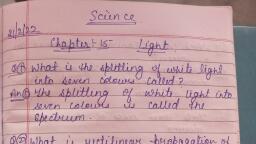 Science
21/2/22
Chapter:- 15 Light
Q(1) What is the splitting of white light
into seven colours called?
Ans(1) The splitting of white light into
seven colours is called the
spectrum.
Q(2) What is rectilinear propagation of